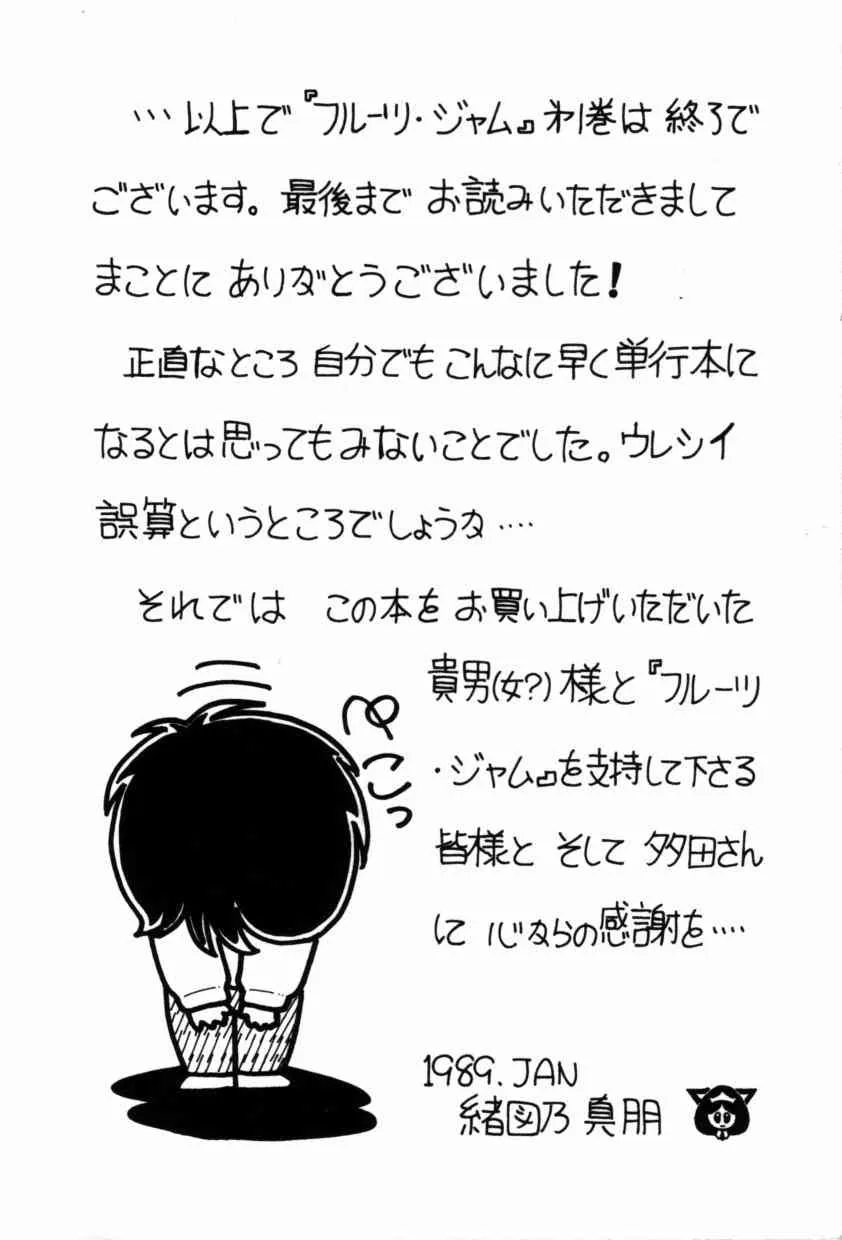 …以上で『フルーツ・ジャム』オ1巻は 終了で
ございます。最後まで お読みいただきまして
まことに ありがとうございました!
正直なところ 自分でも こんなに早く単行本に
なるとは思ってもみないことでした。ウレシイ
誤算というところでしょうか‥‥
それでは この本を お買い上げいただいた
貴男(女?)様と『フルーツ
・ジャム』を支持して下さる
皆様と そして 多田さん
に 心からの感謝を‥‥
ぺこっ
1989.JAN
緒図乃 真朋